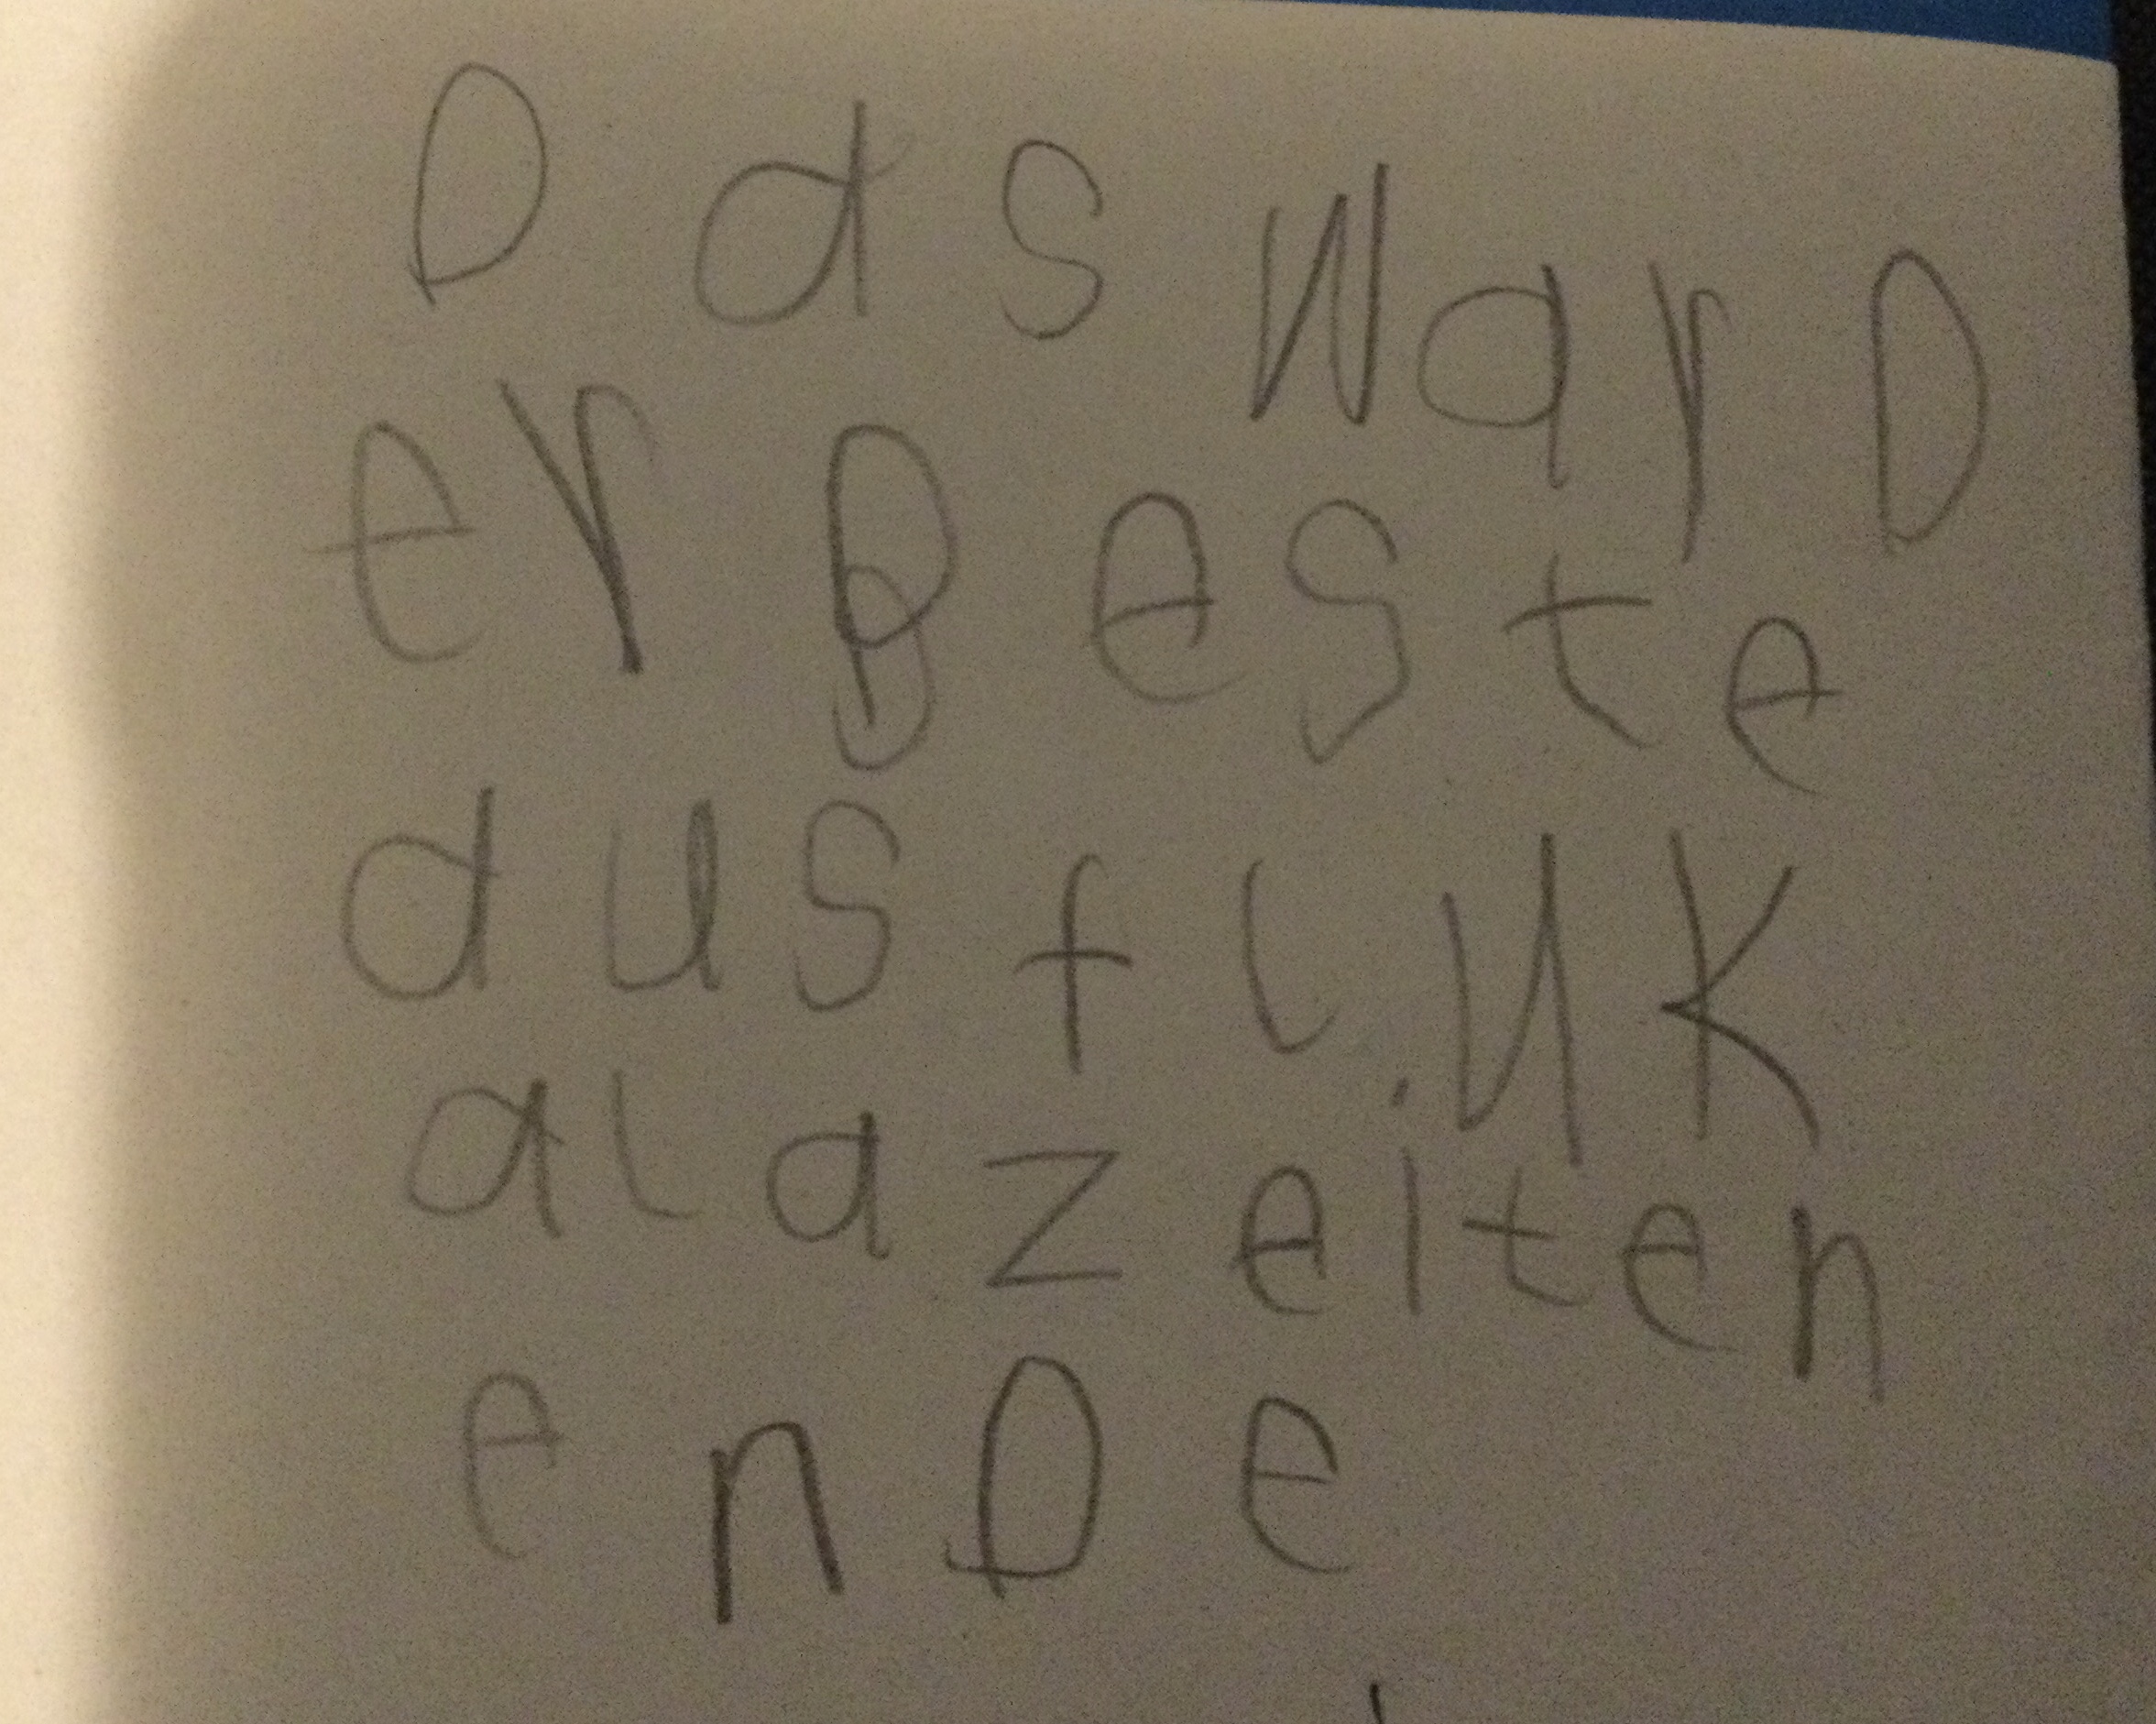 Das War D
er Beste
ausfluk
alazeiten
enDe